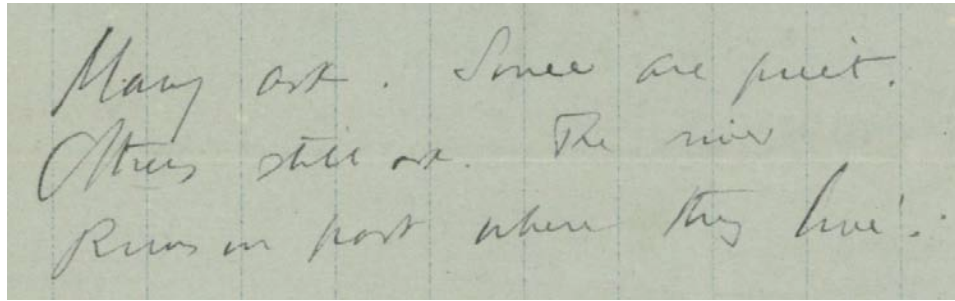 Many ask. Some are quiet.
Others still ask. The river
Runs on past where they live.